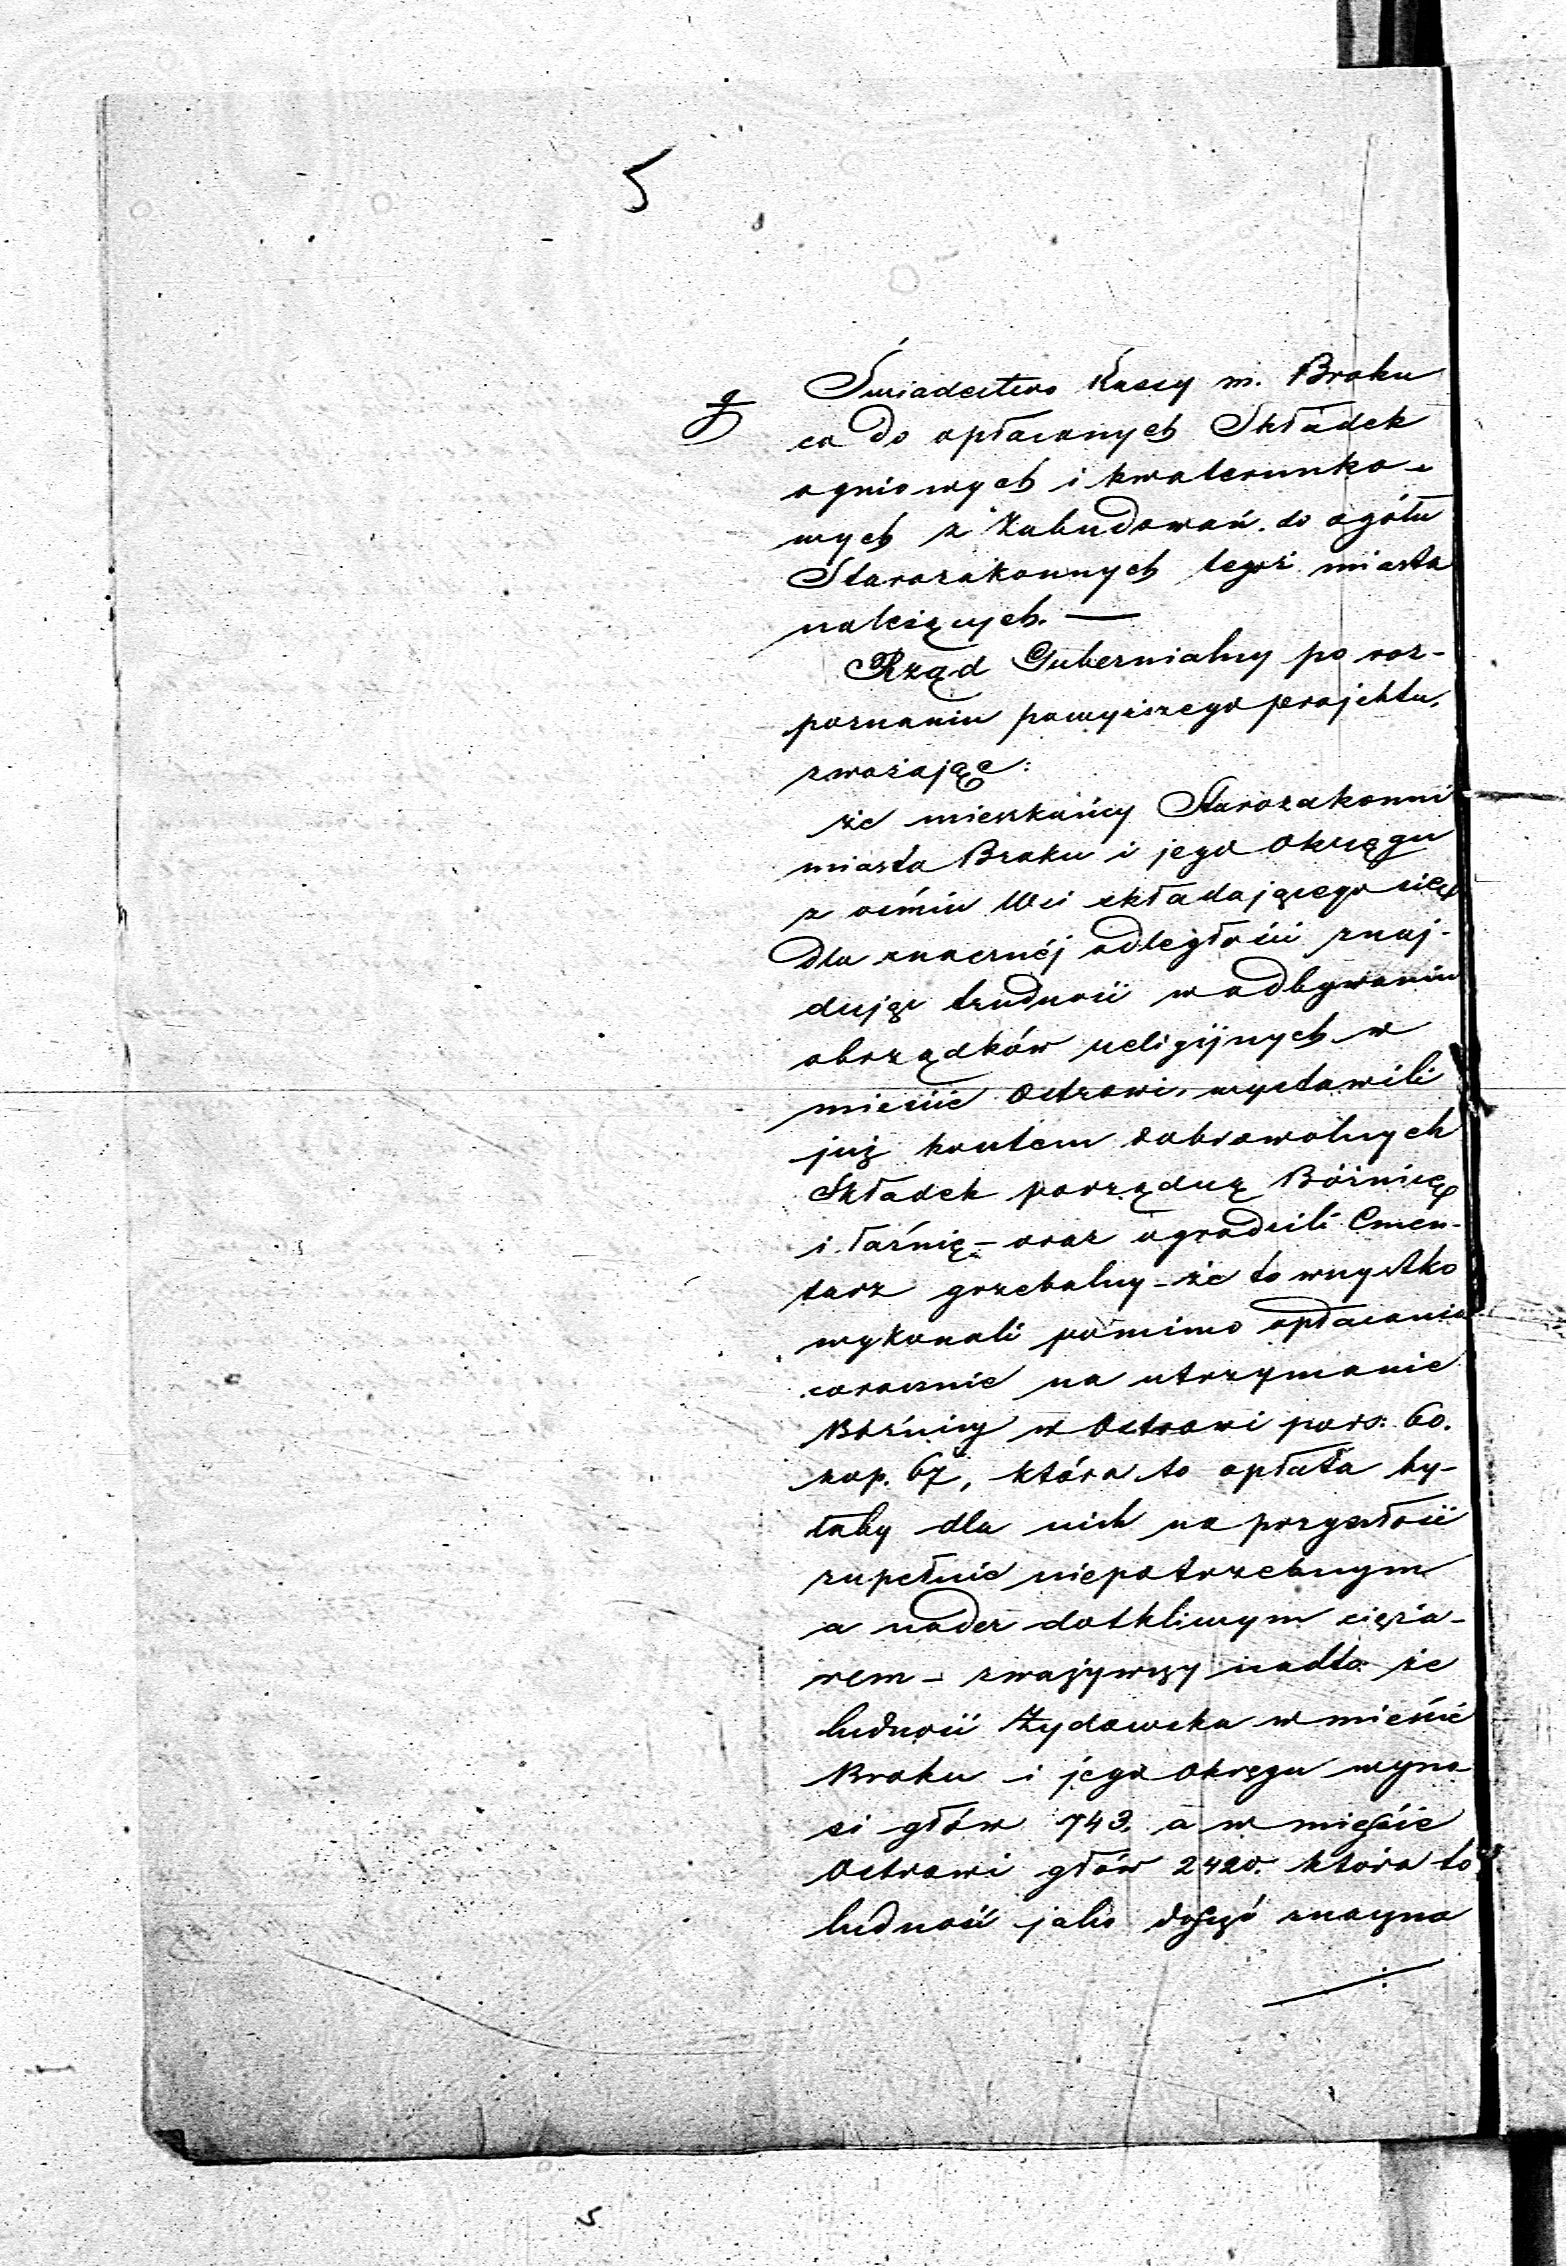 5
g
Świadectwo Kassy m. Broku
co do opłaconych Składek
ogniowych i kwaterunko-
wych z Zabudowań do ogółu
Starozakonnych tegoż miasta
należących. —
Rząd Gubernialny po roz-
poznaniu powyższego projektu,
zważając:
że mieszkańcy Starozakonni
miasta Broku i jego Okręgu
z ośmiu Wsi składającego się
dla znacznéj odległości znaj-
dując trudność w odbywaniu
obrządków religijnych w
mieście Ostrowi, wystawili
już kosztem dobrowolnych
Składek porządną Bóżnicę
i łaźnię – oraz ogrodzili Cmen-
tarz grzebalny – że to wszystko
wykonali pomimo opłacania
corocznie na utrzymanie
Bóżnicy w Ostrowi po rs: 60.
kop. 67, która to opłata by-
łaby dla nich na przyszłość
zupełnie niepotrzebnym
a nader dotkliwym cięża-
rem – zważywszy nadto że
ludność Żydowska w mieście
Broku i jego Okręgu wyno-
si głów 743. a w mieście
Ostrowi głów 2420. która to
ludność jako dosyć znaczna
5